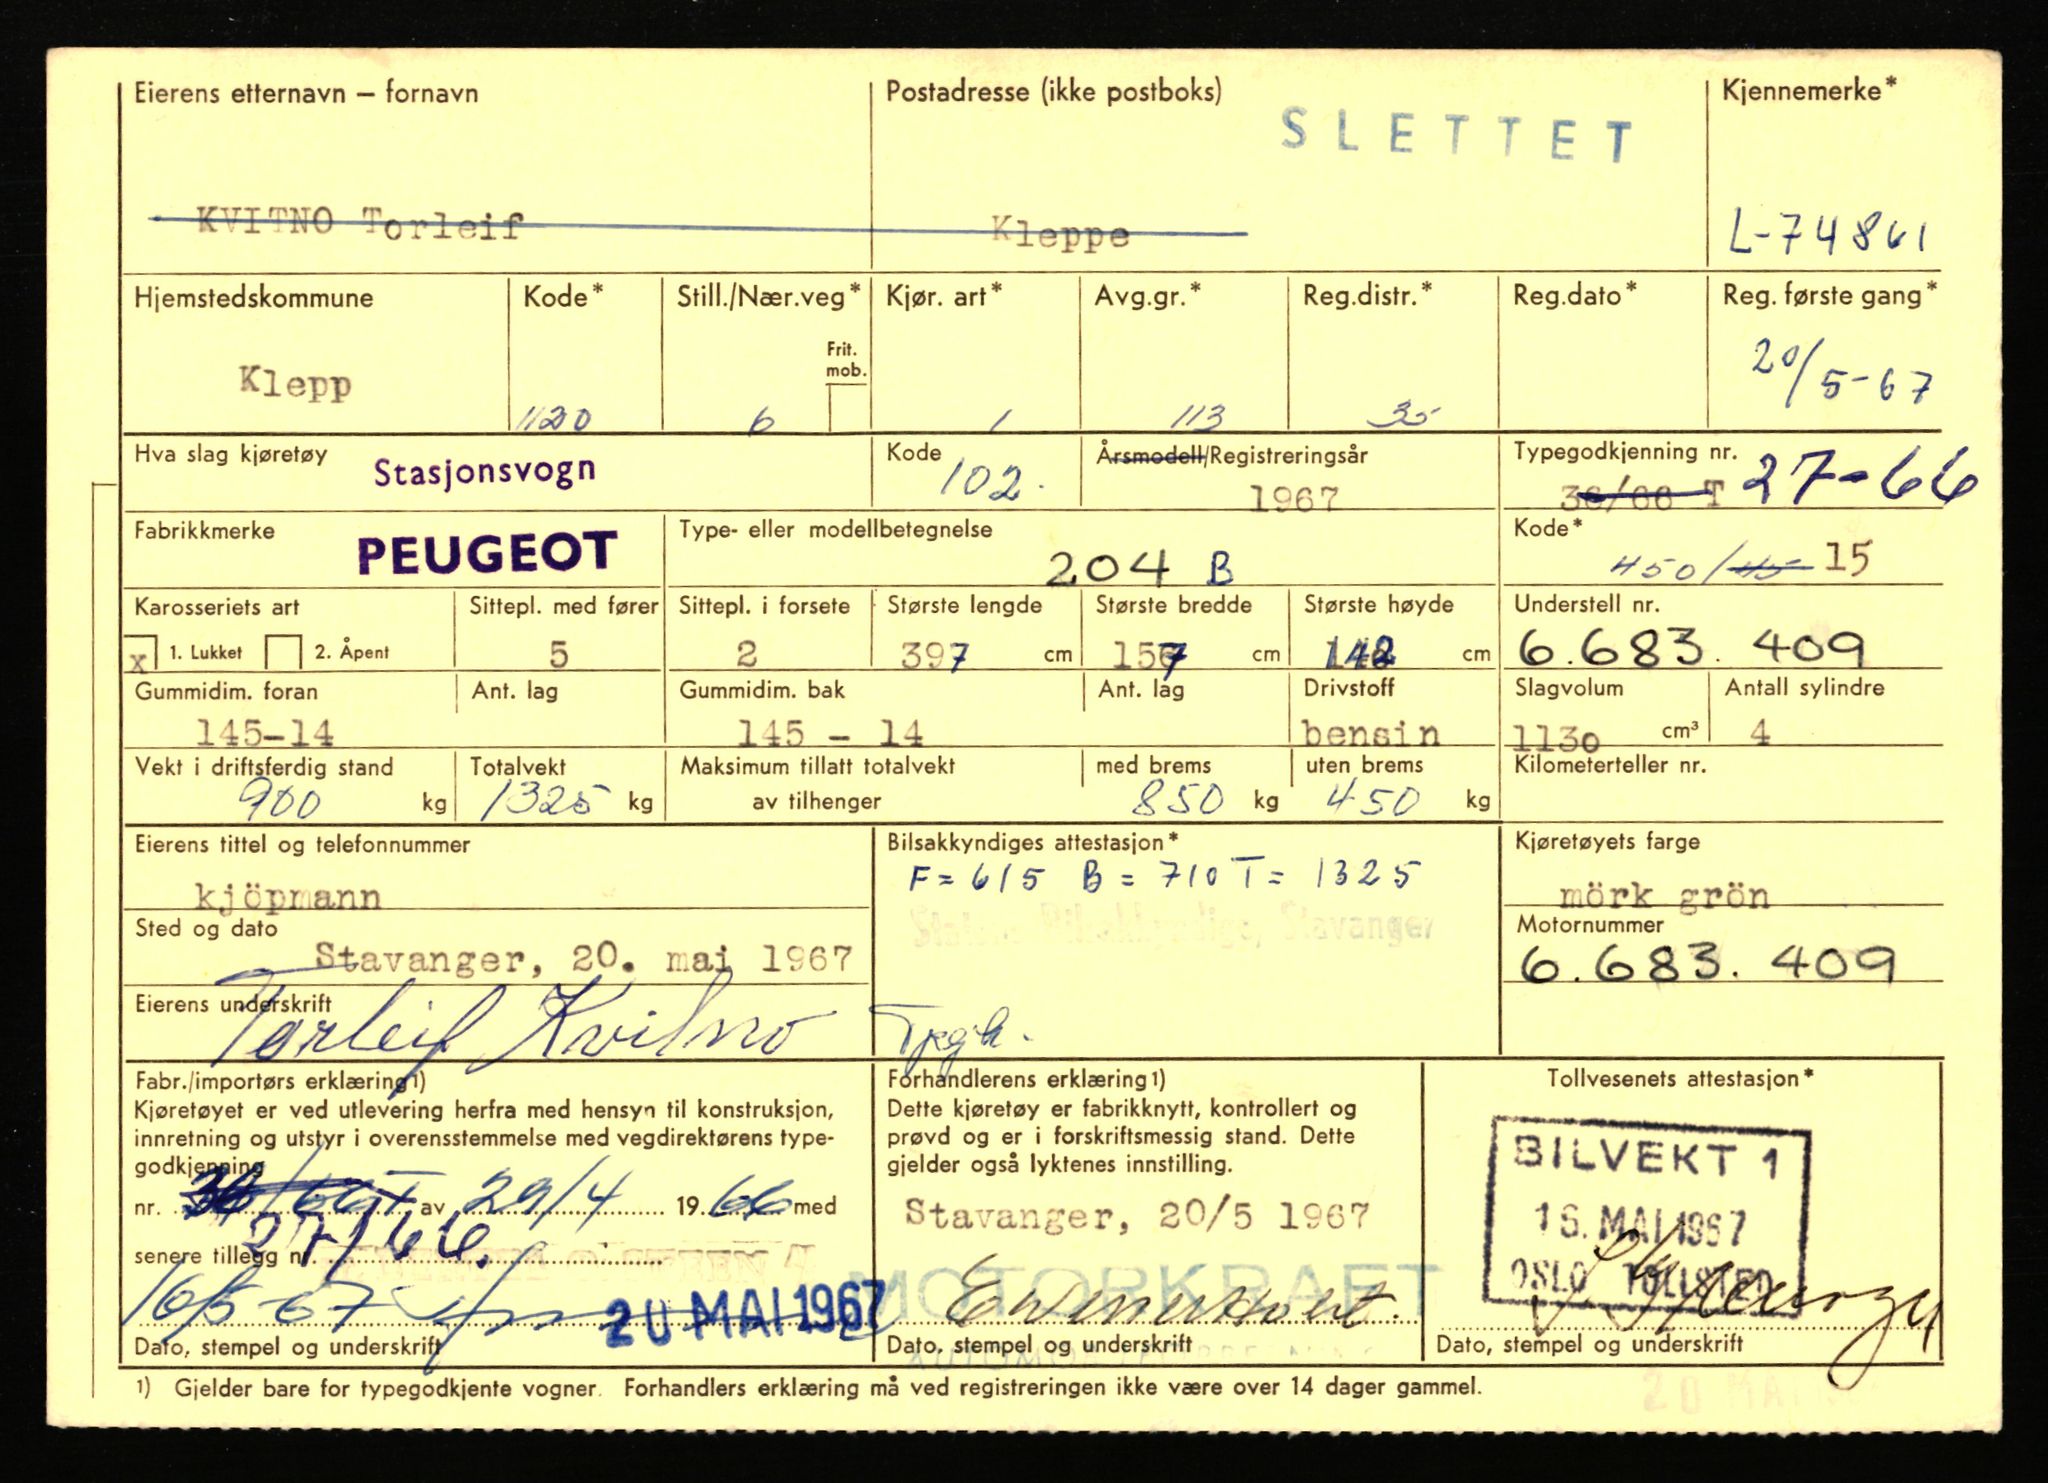 Eierens etternavn – fornavn Postadresse (ikke postboks) Kjennemerke*
SLETTET
KVITNO Torleif Kleppe L-74861
Hjemstedskommune Kode* Still./Nær.veg* Kjør. art* Avg.gr.* Reg.distr.* Reg.dato* Reg. første gang*
Frit. mob.
Klepp 1120 6 1 113 35 20/5-67
Hva slag kjøretøy Stasjonsvogn Kode 102. Årsmodell/Registreringsår 1967 Typegodkjenning nr. 27-66
Fabrikkmerke PEUGEOT Type- eller modellbetegnelse 204 B Kode* 450/45 15
Karosseriets art Sittepl. med fører Sittepl. i forsete Største lengde Største bredde Største høyde Understell nr.
x 1. Lukket 2. Åpent 5 2 397 cm 157 cm 142 cm 6.683.409
Gummidim. foran Ant. lag Gummidim. bak Ant. lag Drivstoff Slagvolum Antall sylindre
145-14 145 - 14 bensin 1130 cm³ 4
Vekt i driftsferdig stand Totalvekt Maksimum tillatt totalvekt med brems uten brems Kilometerteller nr.
900 kg 1325 kg av tilhenger 850 kg 450 kg
Eierens tittel og telefonnummer Bilsakkyndiges attestasjon* Kjøretøyets farge
kjöpmann F = 615 B = 710 T = 1325 mörk grön
Statens Bilsakkyndige, Stavanger
Sted og dato Motornummer
Stavanger, 20. mai 1967 6.683.409
Eierens underskrift Torleif Kvitno Typgk.
Fabr./importørs erklæring1) Forhandlerens erklæring1) Tollvesenets attestasjon*
Kjøretøyet er ved utlevering herfra med hensyn til konstruksjon, Dette kjøretøy er fabrikknytt, kontrollert og
innretning og utstyr i overensstemmelse med vegdirektørens type- prøvd og er i forskriftsmessig stand. Dette
godkjenning gjelder også lyktenes innstilling.
BILVEKT 1
nr. 30/66T av 29/4 1966 med Stavanger, 20/5 1967 16. MAI 1967
senere tillegg nr. 27/66.
OSLO TOLLSTED
16/5-67 20 MAI 1967 MOTORKRAFT
Dato, stempel og underskrift Dato, stempel og underskrift Dato, stempel og underskrift
1) Gjelder bare for typegodkjente vogner. Forhandlers erklæring må ved registreringen ikke være over 14 dager gammel.
20 MAI